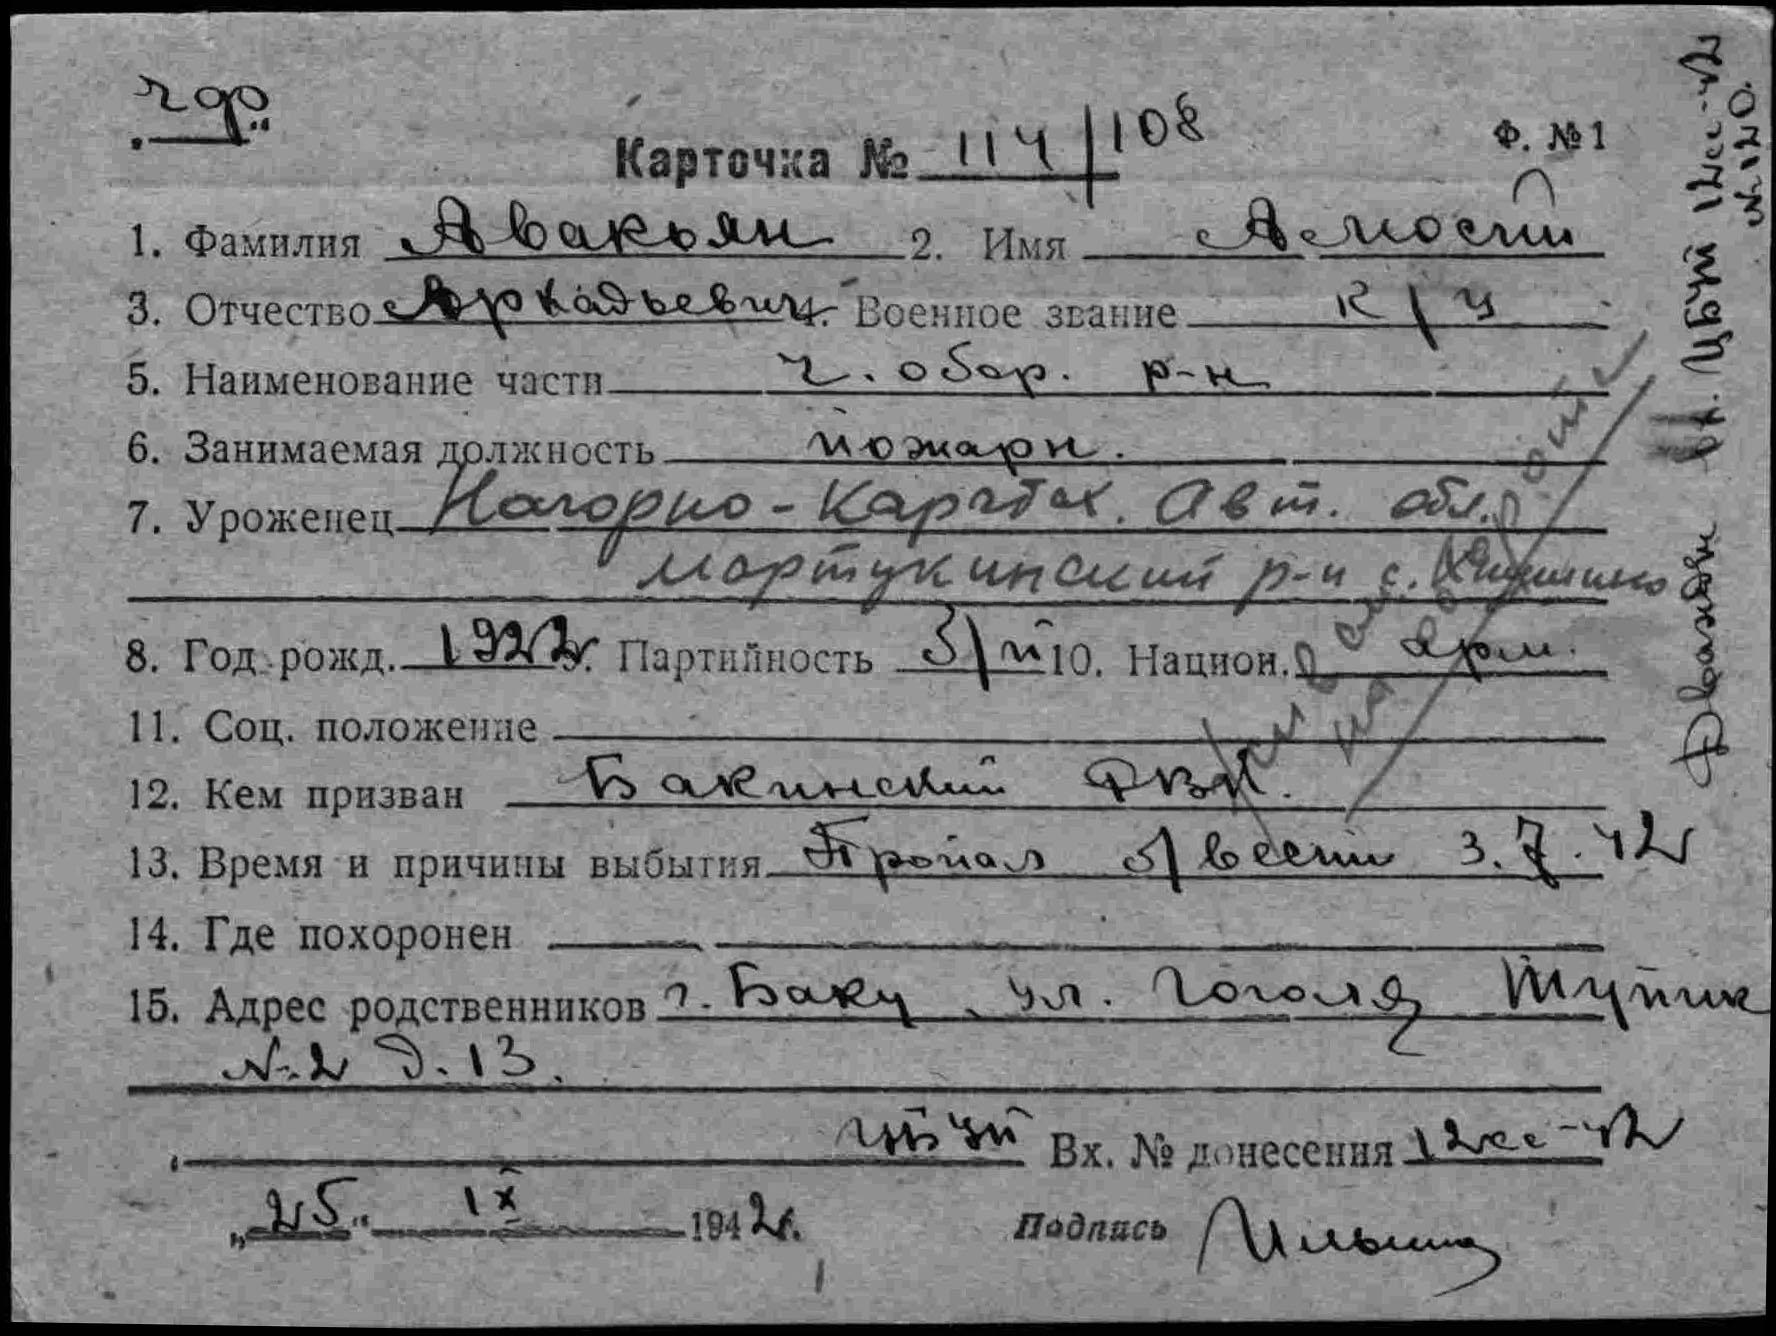 чф
Карточка № 114/108
Ф. № 1
1. Фамилия Авакьян 2. Имя
3. Отчество Аркадьевич. Военное звание к/ч
5. Наименование части ч. обор. р-н
6. Занимаемая должность пожарн.
7. Уроженец Нагорно-Карабах. Авт. обл.
Мартукинский р-н с.
8. Год рожд. 1922г. Партийность б/п 10. Национ. арм.
11. Соц. положение
12. Кем призван Бакинский РВК.
13. Время и причины выбытия Пропал б/вести 3.7.42
14. Где похоронен
15. Адрес родственников г. Баку, ул. Гоголя Тупик
№ 2 д. 13.
Вх. № донесения 12сс-42
„25“ IX 1942г.
Подпись Ильина
Дважды вх. ЦБУП 12сс-42
№ 120.